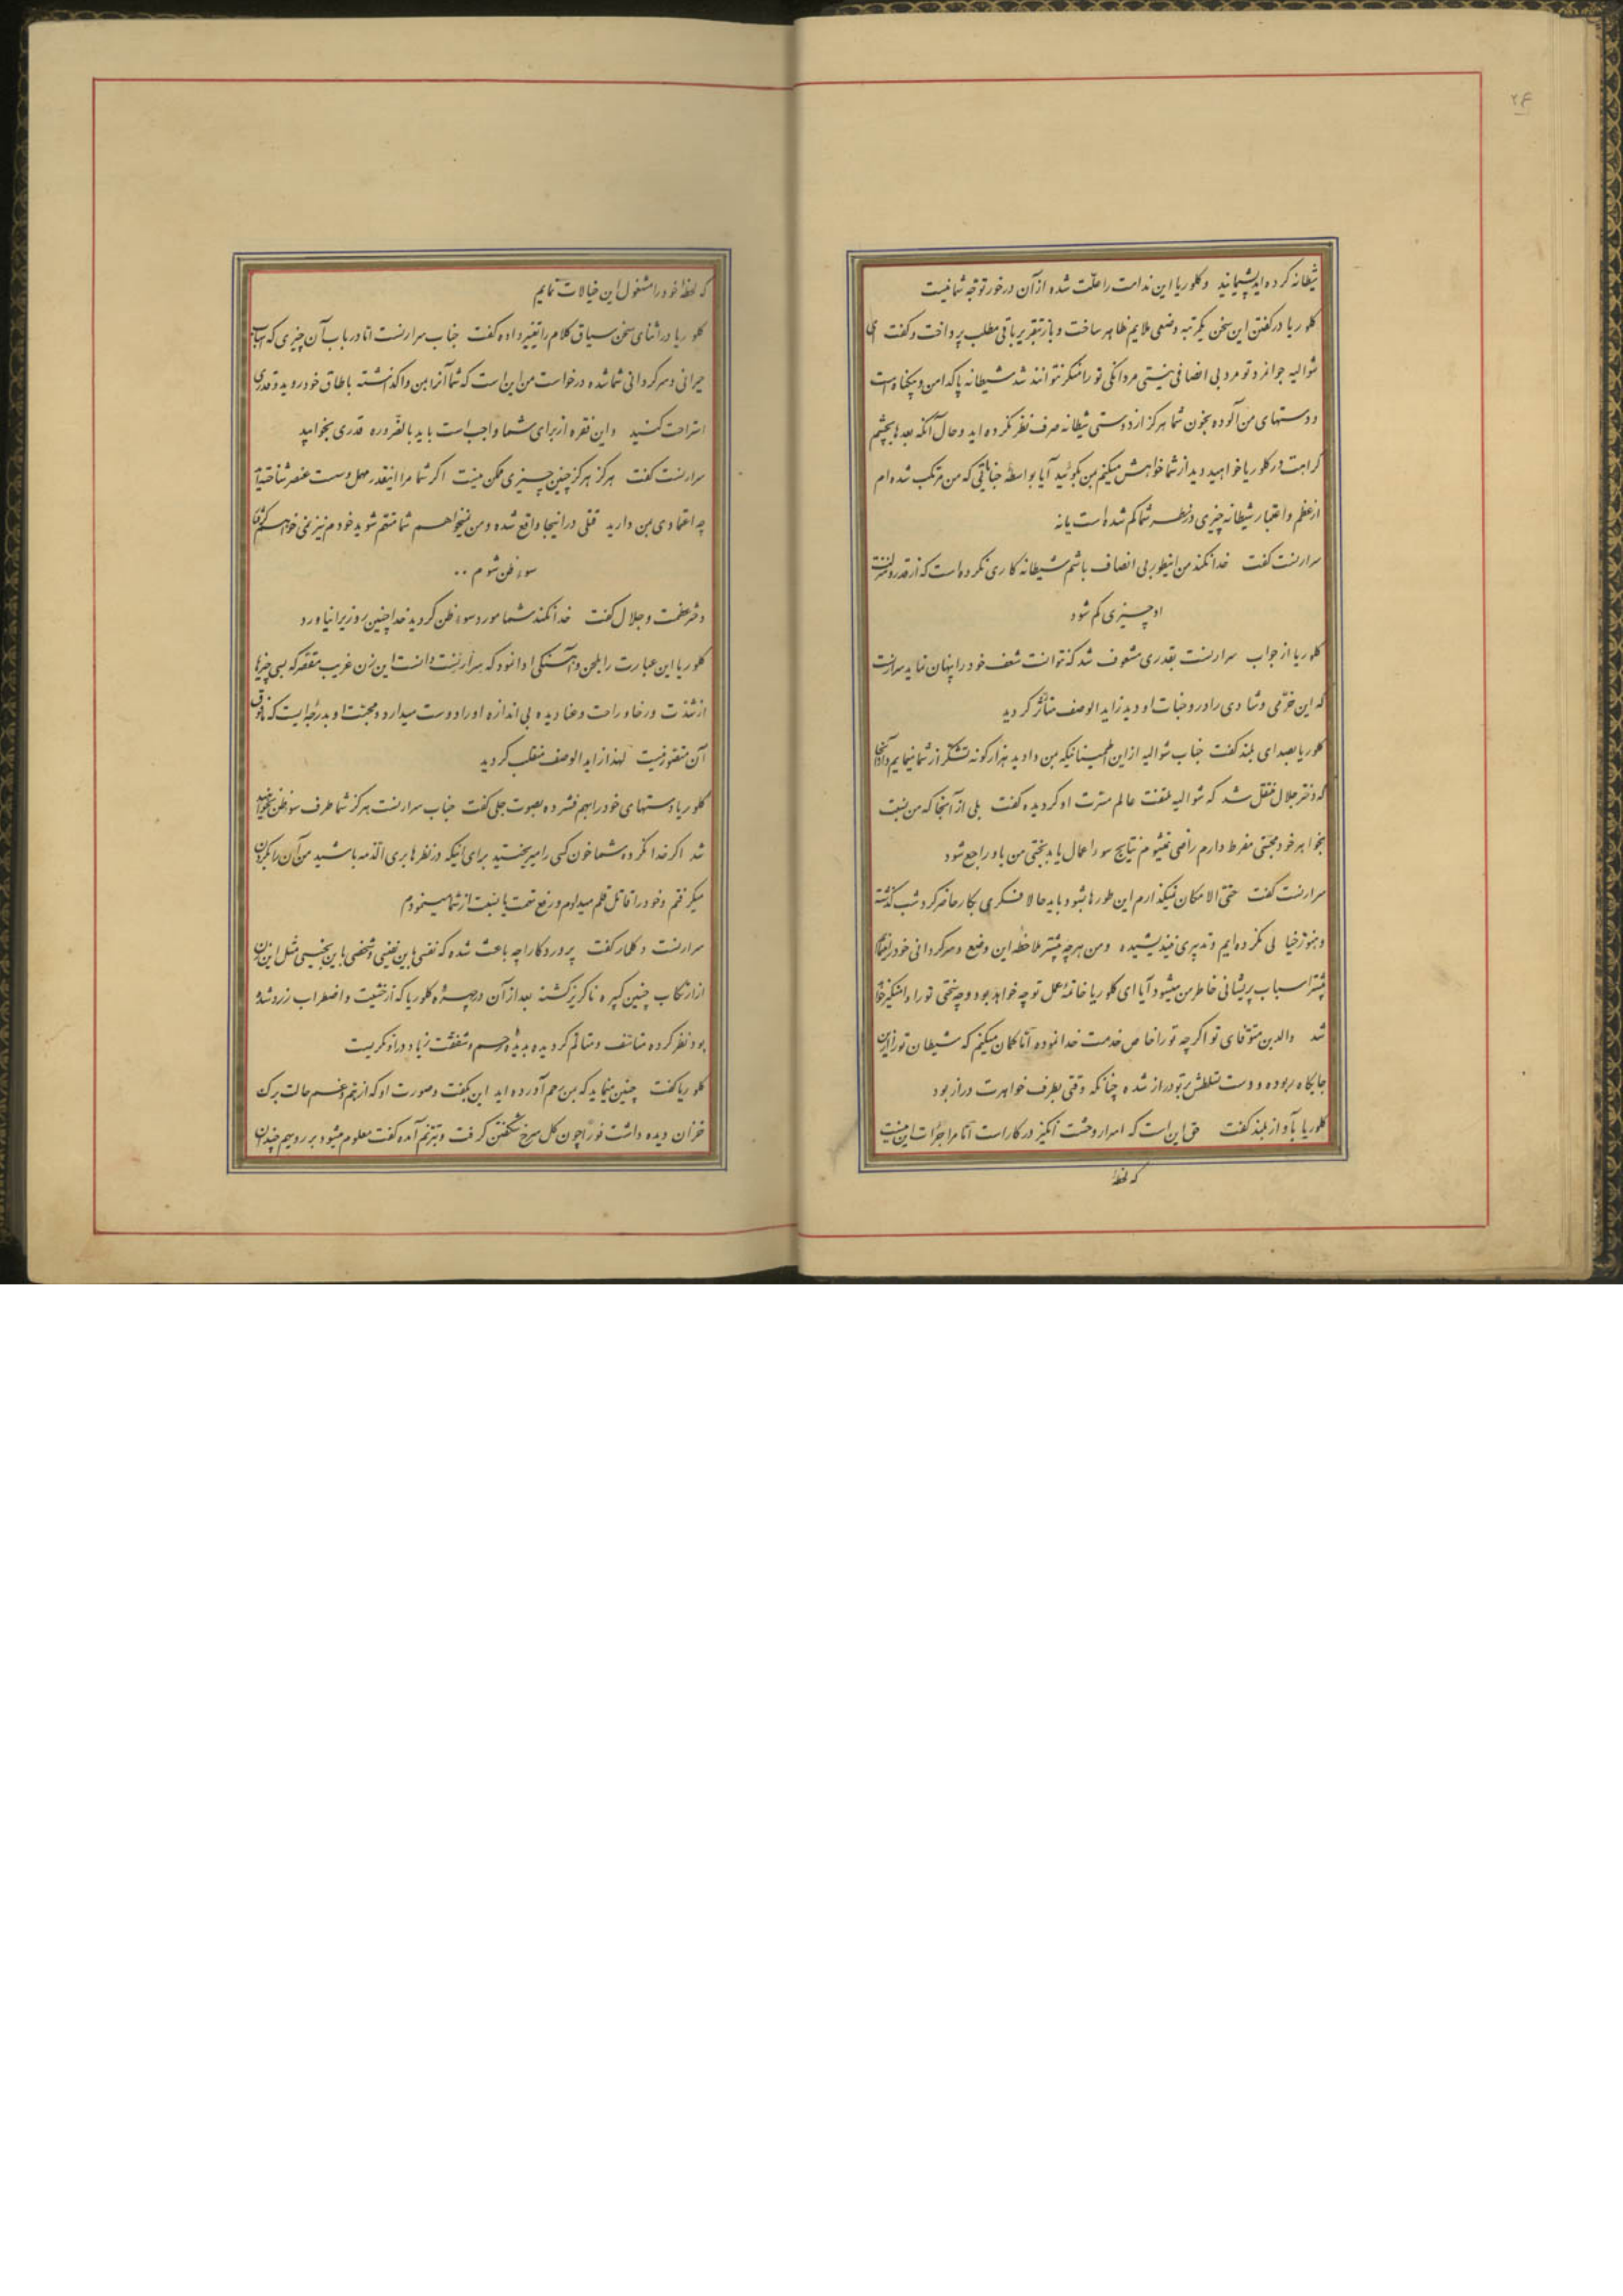 ۲۴
شیطانه کرده‌اید پشیمانید و کلوریا این ندامت را علت شده از آن درخور توجه شما نیست
کلوریا در گفتن این سخن یکمرتبه وضعی ملایم ظاهر ساخت و باز بتقریر باقی مطلب پرداخت و گفت ای
شوالیه جوانمرد تو مرد بی انصافی نیستی مردانگی تو را منکر نتوانند شد شیطانه پاکدامن و بیگناه است
و دستهای من آلوده بخون شما هرگز از دوستی شیطانه صرف نظر نکرده‌اید و حال آنکه بعدها بچشم
کراهت در کلوریا خواهید دید از شما خواهش میکنم بمن بگوئید آیا بواسطهٔ جنایاتی که من مرتکب شده‌ام
از عظم و اعتبار شیطانه چیزی در نظر شما کم شده است یا نه
سرارنست گفت خدا نکند من اینطور بی انصاف باشم شیطانه کاری نکرده است که از قدر و منزلت
او چیزی کم شود
کلوریا از جواب سرارنست بقدری مشعوف شد که نتوانست شعف خود را پنهان نماید سرارنست
که این خرمی و شادی را در وجنات او دید زاید الوصف متأثر گردید
کلوریا بصدای بلند گفت جناب شوالیه از این اطمینانیکه بمن دادید هزار گونه تشکر از شما مینمایم و از آنجا
که دختر جلال منتقل شد که شوالیه ملتفت عالم مسرت او گردیده گفت بلی از آنجا که من نسبت
بخواهر خود محبتی مفرط دارم راضی نمیشوم نتایج سوء اعمال یا بدبختی من باو راجع شود
سرارنست گفت حتی الامکان نمیگذارم این طورها بشود باید حالا فکری بکار حاضر کرد شب گذشته
و هنوز خیالی نکرده‌ایم و تدبیری نیندیشیده و من هرچه بیشتر ملاحظه این وضع و سرگردانی خود را مینمایم
بیشتر اسباب پریشانی خاطر من میشود آیا ای کلوریا خاتمهٔ عمل تو چه خواهد بود و چه بختی تو را دامنگیر خواهد
شد والدین متوفای تو اگرچه تو را خاص خدمت خدا نموده اما گمان میکنم که شیطان تو را از این
جایگاه ربوده و دست تسلطش بتو دراز شده چنانکه وقتی بطرف خواهرت دراز بود
کلوریا بآواز بلند گفت حق این است که اسرار وحشت انگیز در کار است اما مرا جرأت این نیست
که لحظهٔ
که لحظهٔ خود را مشغول این خیالات نمایم
کلوریا در اثنای سخن سیاق کلام را تغییر داده گفت جناب سرارنست اما در باب آن چیزی که اسباب
حیرانی و سرگردانی شما شده درخواست من این است که شما آنرا بمن واگذاشته باطاق خود روید و قدری
استراحت کنید و این فقره از برای شما واجب است باید بالضروره قدری بخوابید
سرارنست گفت هرگز هرگز چنین چیزی ممکن نیست اگر شما مرا اینقدر مهمل و سست عنصر شناخته‌اید
چه اعتمادی بمن دارید قتلی در اینجا واقع شده و من نمیخواهم شما متهم شوید خودم نیز نمی‌خواهم گرفتار
سوء ظن شوم ..
دختر عظمت و جلال گفت خدا نکند شما مورد سوء ظن گردید خدا چنین روزی را نیاورد
کلوریا این عبارت را بلحن و آهستگی ادا نمود که سرارنست دانست این زن غریب مقصر که بسی چیزها
از شدت و رخا و راحت و عنا دیده بی اندازه او را دوست میدارد و محبت او بدرجهٔ ایست که مافوق
آن متصور نیست لهذا زاید الوصف منقلب گردید
کلوریا دستهای خود را بهم فشرده بصوت جلی گفت جناب سرارنست هرگز شما طرف سوء ظن نخواهید
شد اگر خدا نکرده شما خون کسی را میریختید برای اینکه در نظرها بری الذمه باشید من آن را بگردن
میگرفتم و خود را قاتل قلم میدادم و رفع تهمت یا نسبت از شما مینمودم
سرارنست در کلمار گفت پروردگارا چه باعث شده که نفسی باین نفیسی و شخصی باین نخیسی مثل این زن
از ارتکاب چنین کبیره ناگریز گشته بعد از آن در چهرهٔ کلوریا که از خشیت و اضطراب زرد شده
بود نظر کرده متأسف و متألم گردیده بدیدهٔ ترحم و شفقت زیاد در او نگریست
کلوریا گفت چنین مینماید که بمن رحم آورده‌اید این بگفت و صورت او که از هم و غم حالت برگ
خزان دیده داشت فوراً چون گل سرخ شکفتن گرفت و بترنم آمده گفت معلوم میشود بر رویهم چندان